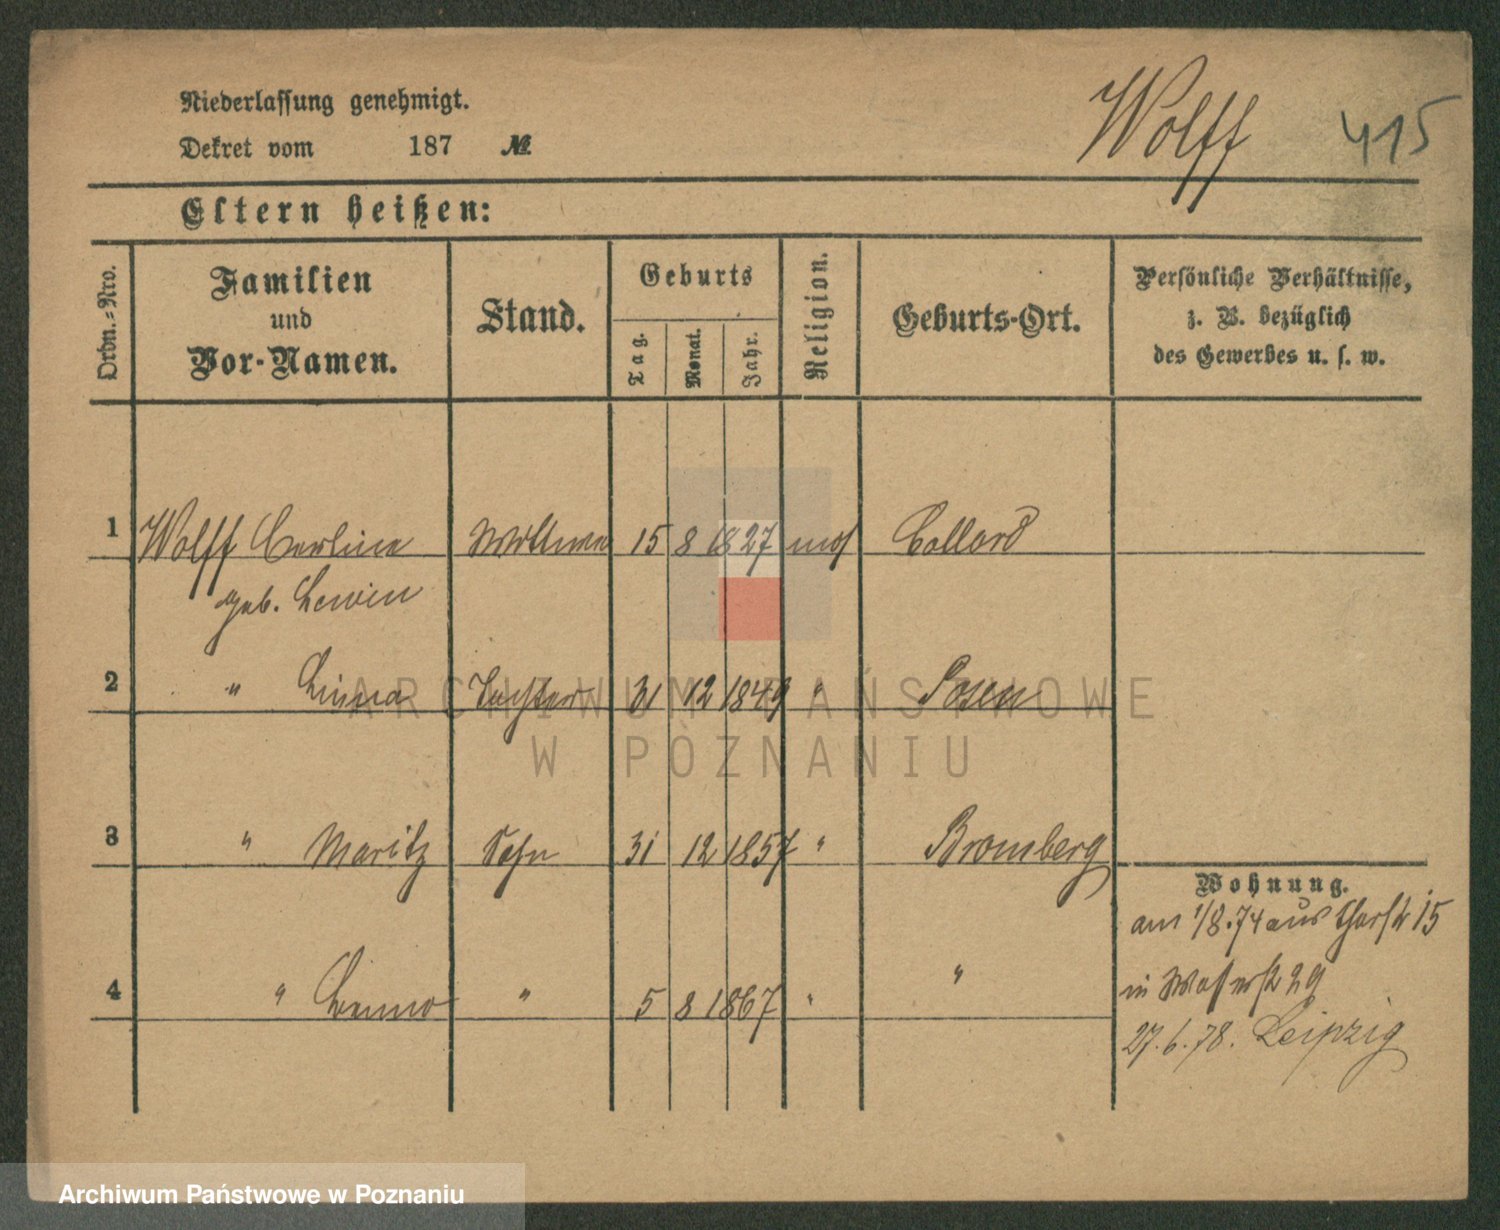 Niederlassung genehmigt.
Dekret vom 187 №
Wolff 415
Eltern heißen:
Ordn.-Nro.
Familien
und
Vor-Namen.
Stand.
Geburts
Tag.
Monat.
Jahr.
Religion.
Geburts-Ort.
Persönliche Verhältnisse,
z. B. bezüglich
des Gewerbes u. s. w.
1 Wolff Carline Wittwe 15 8 1827 mos
geb. Lewin
2 " Tochter 31 12 1849 " Posen
3 " Moritz Sohn 31 12 1857 " Bromberg
4 " " 5 8 1867 " "
Wohnung.
am 1/8.74 aus 15
in Wasserstr 29
27.6.78. Leipzig
ARCHIWUM PAŃSTWOWE
W POZNANIU
Archiwum Państwowe w Poznaniu